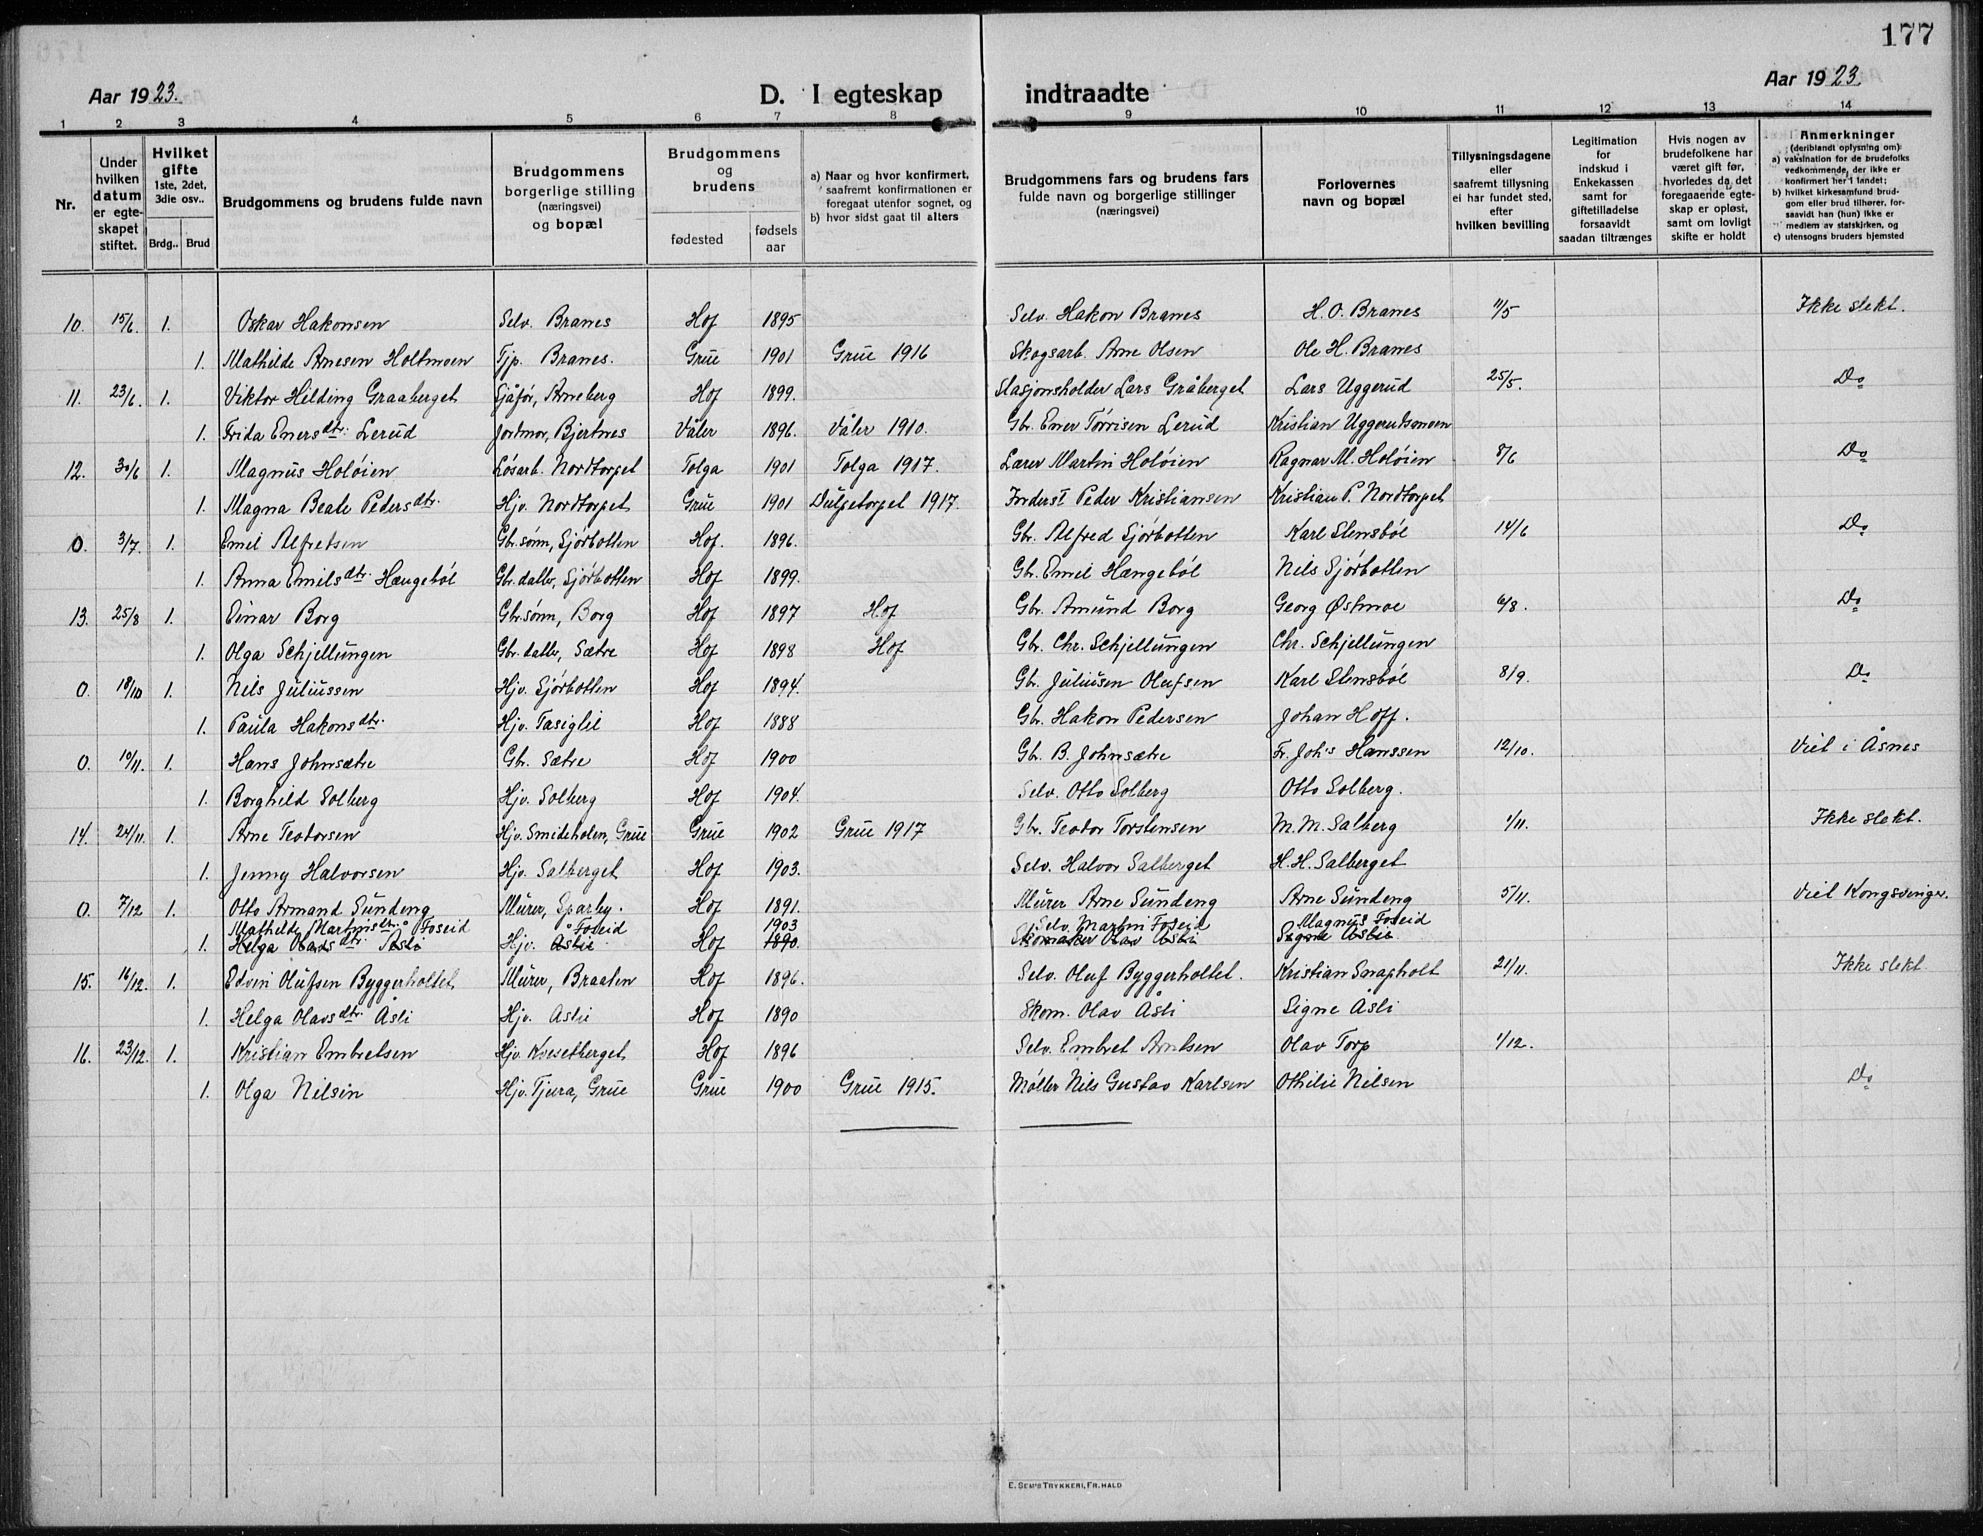 177
Aar 1923.
D. I egteskap indtraadte
Aar 1923.
1 2 3 4 5 6 7 8 9 10 11 12 13 14
Nr.
Under hvilken datum er egte-skapet stiftet.
Hvilket gifte 1ste, 2det, 3die osv..
Brdg.. Brud
Brudgommens og brudens fulde navn
Brudgommens borgerlige stilling (næringsvei) og bopæl
Brudgommens og brudens
fødested
fødsels aar
a) Naar og hvor konfirmert, saafremt konfirmationen er foregaat utenfor sognet, og
b) hvor sidst gaat til alters
Brudgommens fars og brudens fars fulde navn og borgerlige stillinger (næringsvei)
Forlovernes navn og bopæl
Tillysningsdagene eller saafremt tillysning ei har fundet sted, efter hvilken bevilling
Legitimation for indskud i Enkekassen samt for giftetilladelse forsaavidt saadan tiltrænges
Hvis nogen av brudefolkene har været gift før, hvorledes da det foregaaende egte-skap er opløst, samt om lovligt skifte er holdt
Anmerkninger (deriblandt oplysning om):
a) vaksination for de brudefolks vedkommende, der ikke er konfirmert her i landet;
b) hvilket kirkesamfund brud-gom eller brud tilhører, for-saavidt han (hun) ikke er medlem av statskirken, og
c) utensogns bruders hjemsted
10. 15/6. 1. Oskar Hakonsen Selv. Branes Hof 1895 Selv. Hakon Branes H. O. Branes 11/5 Ikke slekt.
1. Mathilde Arnesen Holtmoen Tjp. Branes. Grue 1901 Grue 1916 Skogsarb. Arne Olsen Ole H. Branes
11. 23/6. 1. Viktor Hilding Graaberget Sjåfør, Arneberg Hof 1899. Stasjonsholder Lars Gråberget Lars Uggerud 25/5. Do
1. Frida Enersdtr. Lerud Jordmor, Bjertnes Våler 1896. Våler 1910. Gbr. Ener Tørrisen Lerud Kristian Uggerudsmoen
12. 30/6 1. Magnus Holøien Løsarb. Nordtorpet Tolga 1901 Tolga 1917. Lærer Martin Holøien Ragnar M. Holøien 8/6 Do
1. Magna Beate Pedersdtr. Hjv. Nordtorpet Grue 1901 Dulpetorpet 1917. Inderst Peder Kristiansen Kristian P. Nordtorpet
0. 3/7. 1. Emil Alfretsen Gbr.sønn, Sjørbotten Hof. 1896. Gbr. Alfred Sjørbotten Karl Stensbøl 14/6 Do
1. Anna Emilsdtr. Hængebøl Gbr. datter, Sjørbotten Hof 1899. Gbr. Emil Hængebøl Nils Sjørbotten
13. 25/8 1. Einar Borg Gbr.sønn, Borg Hof 1897 Hof Gbr. Amund Borg Georg Østmoe 6/8. Do
1. Olga Schjellungen Gbr. datter, Sætre Hof 1898 Hof Gbr. Chr. Schjellungen Chr. Schjellungen
0. 18/10 1. Nils Juliussen Hjv. Sjørbotten Hof 1894. Gbr. Juliusen Olufsen Karl Stensbøl 8/9. Do
1. Paula Hakonsdtr. Hjv. Tasiglii Hof 1888 Gbr. Hakon Pedersen Johan Hoff.
0. 10/11. 1. Hans Johnsætre Gbr. Sætre Hof 1900 Gbr. B. Johnsætre Fr. Joh's Hanssen 12/10. Viet i Åsnes
1. Borghild Solberg Hjv. Solberg Hof 1904. Selv. Otto Solberg Otto Solberg.
14. 24/11. 1. Arne Teodorsen Hjv. Smideholen, Grue Grue 1902 Grue 1917 Gbr. Teodor Torstensen M. M. Salberg 1/11. Ikke slekt.
1. Jenny Halvorsen Hjv. Salberget Hof 1903. Selv. Halvor Salberget H. H. Salberget
0. 7/12 1. Otto Armand Sundeng Murer, Sparby. Hof 1891. Murer Arne Sundeng Arne Sundeng 5/11. Viet Kongsvinger.
Mathilde Martinsdtr. Foseid Foseid 1903 Selv. Martin Foseid Magnus Foseid
1. Helga Olavsdtr. Åsli Hjv. Åslie Hof 1890. Skomaker Olav Åsli Signe Åslie
15. 16/12. 1. Edvin Olufsen Byggerholtet Murer, Braaten Hof 1896. Selv. Oluf Byggerholtet. Kristian Snapholt 21/11. Ikke slekt
1. Helga Olavsdtr. Åsli Hjv. Aslie Hof 1890 Skom. Olav Åsli Signe Åsli
16. 23/12. 1. Kristian Embretsen Hjv. Kvesetberget Hof 1896 Selv. Embret Arntsen Olav Torp 1/12.
1. Olga Nilsen Hjv. Tjura, Grue Grue 1900 Grue 1915. Møller Nils Gustav Karlsen Othilie Nilsen Do
E. SEM'S TRYKKERI, FR.HALD